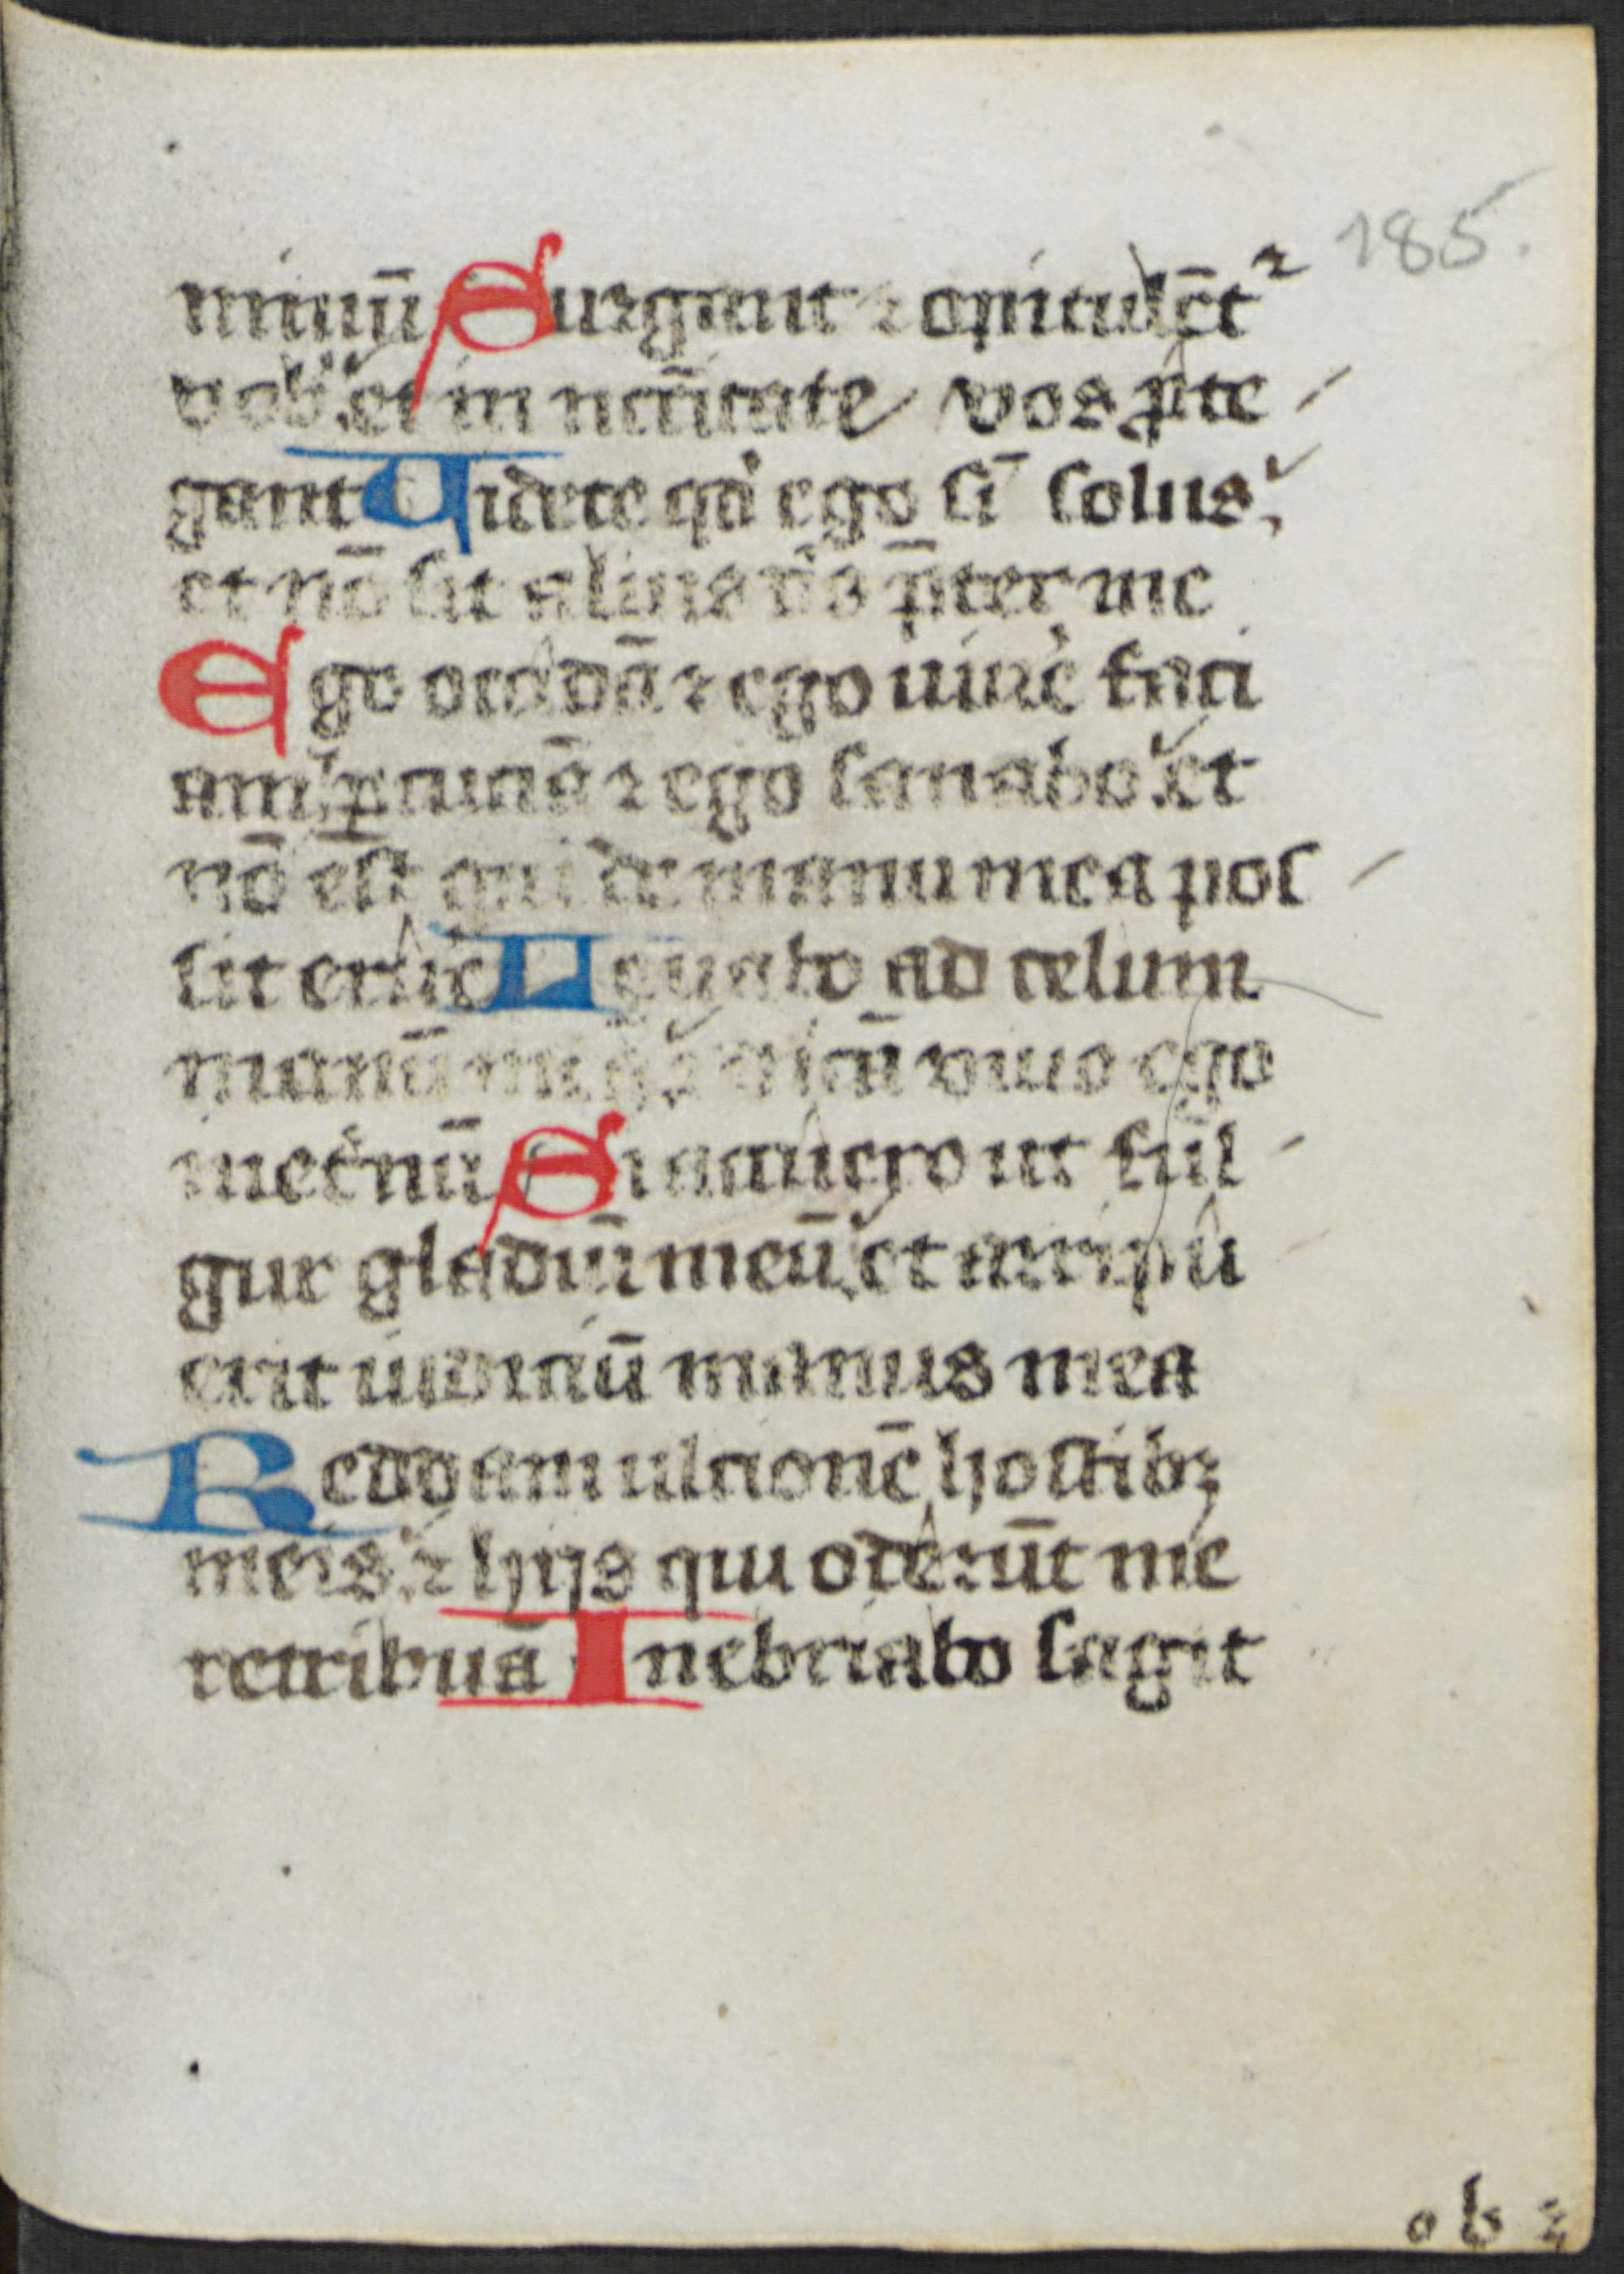 185.
minum Surgant ⁊ opitulēt²
vobˢ et in nccitate vos ꝓte
gant Videte qd ego sī solus
et nō sit alius dˢ p̄ter me
Ego occidā ⁊ ego viuē faci
am ꝑcuciā ⁊ ego sanabo et
nō est qui de manu mea pos
sit eruē Leuabo ad celum
manū meā ⁊ dicā viuo ego
inet̄nū Si acuero ut ful
gur gladiū meū et arripu
erit iudiciū manus mea
Reddam ulcionē hostibꝫ
meis ⁊ hijs qui oderūt me
retribuā Inebriabo sagit